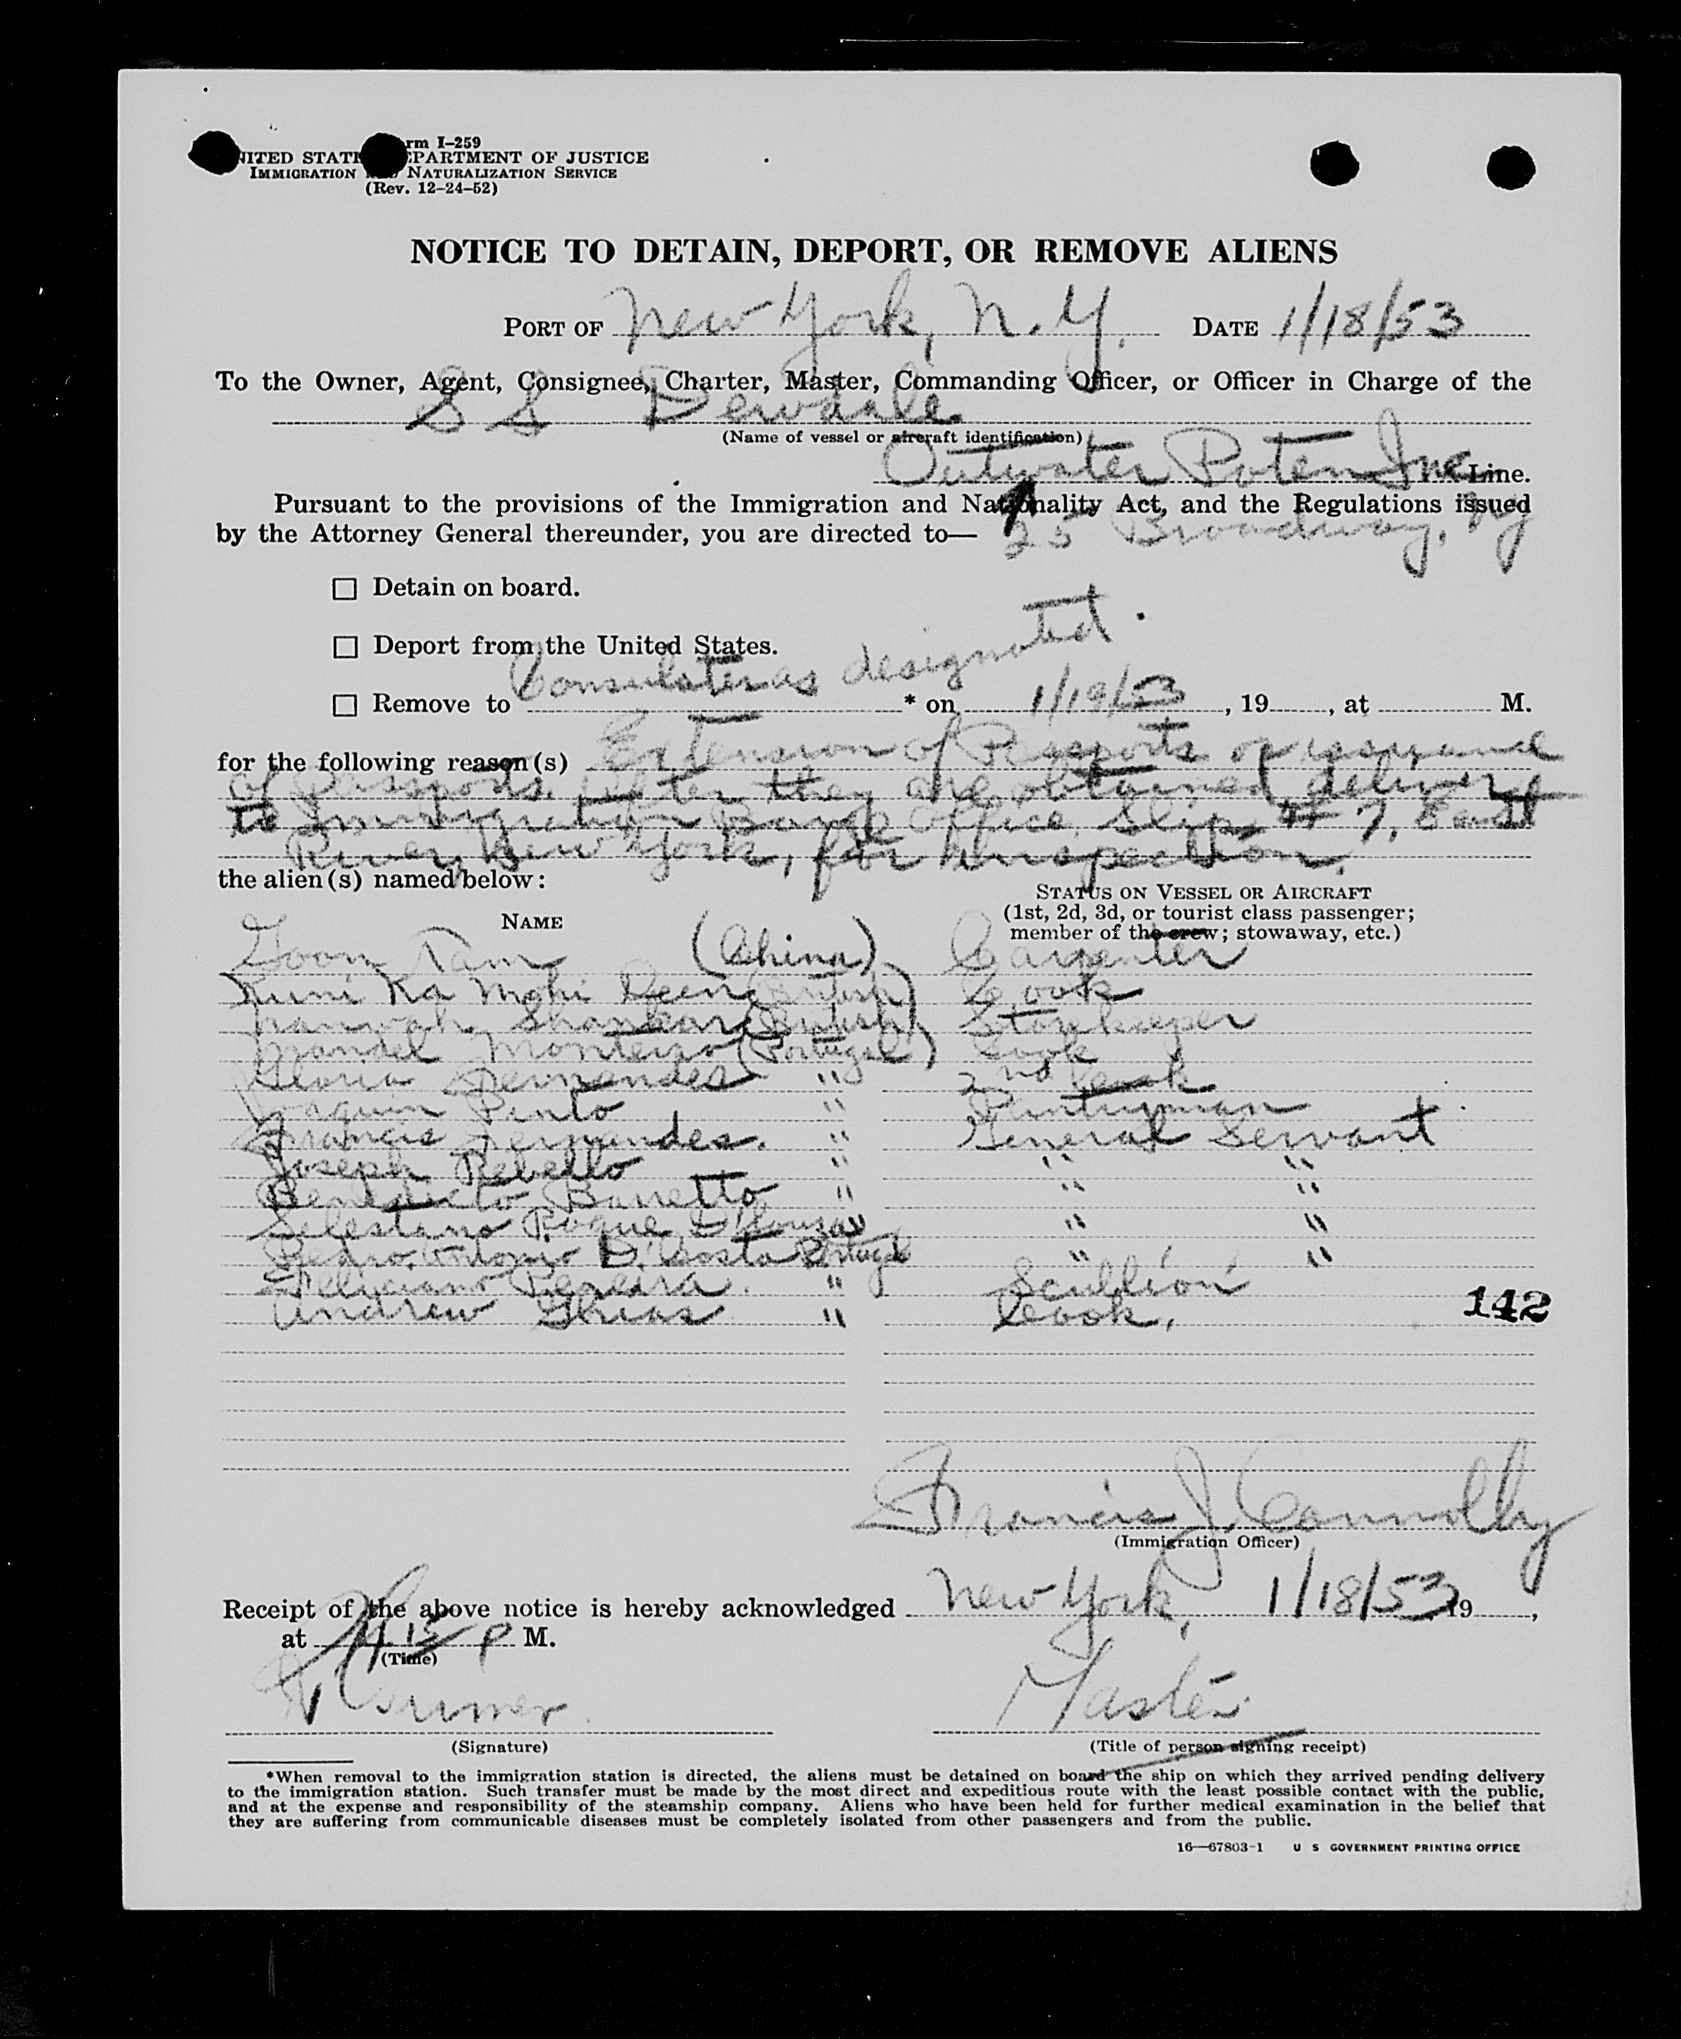 Form I-259
UNITED STATES DEPARTMENT OF JUSTICE
IMMIGRATION AND NATURALIZATION SERVICE
(Rev. 12-24-52)
NOTICE TO DETAIN, DEPORT, OR REMOVE ALIENS
PORT OF New York, N.Y. DATE 1/18/53
To the Owner, Agent, Consignee, Charter, Master, Commanding Officer, or Officer in Charge of the
S S Dewdale
(Name of vessel or aircraft identification)
Outwater Poten Inc Line.
Pursuant to the provisions of the Immigration and Nationality Act, and the Regulations issued
by the Attorney General thereunder, you are directed to—
25 Broadway, NY
☐ Detain on board.
☐ Deport from the United States.
☐ Remove to Consulates as designated * on 1/19/53, 19 , at M.
for the following reason(s) Extension of Passports or issuance
of passports. After they are obtained deliver
to Immigration Barge Office, Slip # 7, East
River, New York, for inspection.
the alien(s) named below:
NAME
STATUS ON VESSEL OR AIRCRAFT
(1st, 2d, 3d, or tourist class passenger;
member of the crew; stowaway, etc.)
Goon Tam (China) Carpenter
Kuni Ka Mohi Deen (British) Cook
Shankar (British) Storekeeper
Manuel Monteiro (Portugal) Cook
Gloria Fernandes " 2nd Cook
Joaquim Pinto " Pantryman
Francis Fernandes. " General Servant
Joseph Rebello " " "
Benedicto Barretto " " "
Selestano Roque D'Souza " " "
Pedro Antonio D'Costa Portugal " "
Feliciano Pereira. " Scullion
Andrew Ghias " Cook,
142
Francis J. Connolly
(Immigration Officer)
Receipt of the above notice is hereby acknowledged New York, 1/18/53 19 ,
at P M.
(Time)
Master
(Signature) (Title of person signing receipt)
*When removal to the immigration station is directed, the aliens must be detained on board the ship on which they arrived pending delivery
to the immigration station. Such transfer must be made by the most direct and expeditious route with the least possible contact with the public,
and at the expense and responsibility of the steamship company. Aliens who have been held for further medical examination in the belief that
they are suffering from communicable diseases must be completely isolated from other passengers and from the public.
16—67803-1 U S GOVERNMENT PRINTING OFFICE